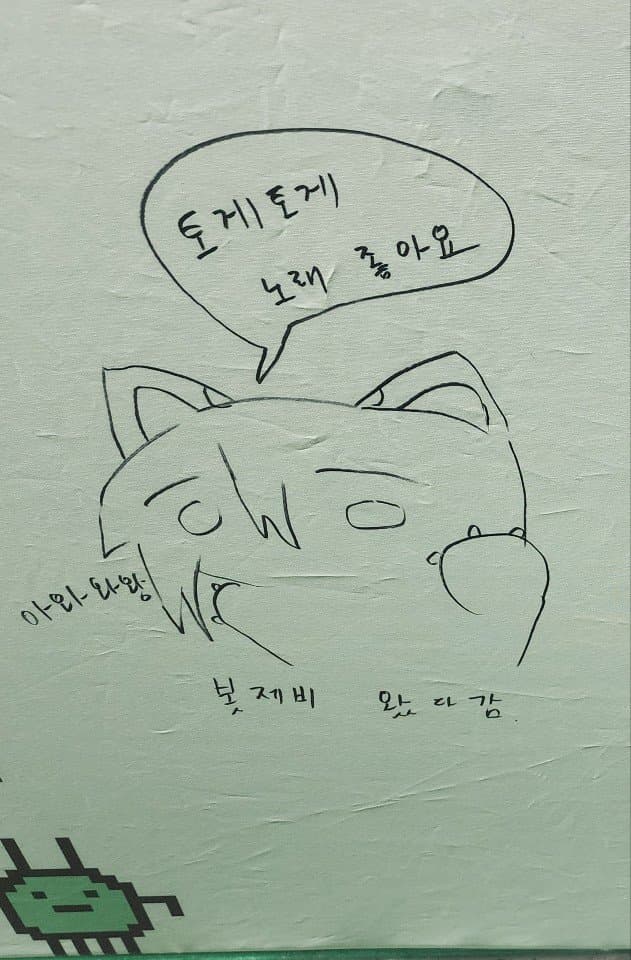 토게토게
노래 좋아요
아와와왕
봇제비 왔다감.